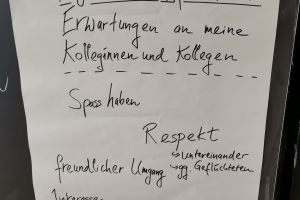 Erwartungen an meine
Kolleginnen und Kollegen
Spass haben
Respekt
↳ untereinander
freundlicher Umgang
↳ gg. Geflüchteten